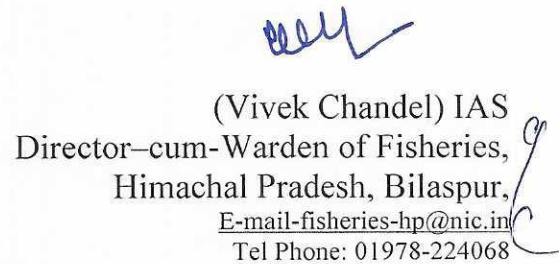 (Vivek Chandel) IAS
Director–cum-Warden of Fisheries,
Himachal Pradesh, Bilaspur,
E-mail-fisheries-hp@nic.in
Tel Phone: 01978-224068